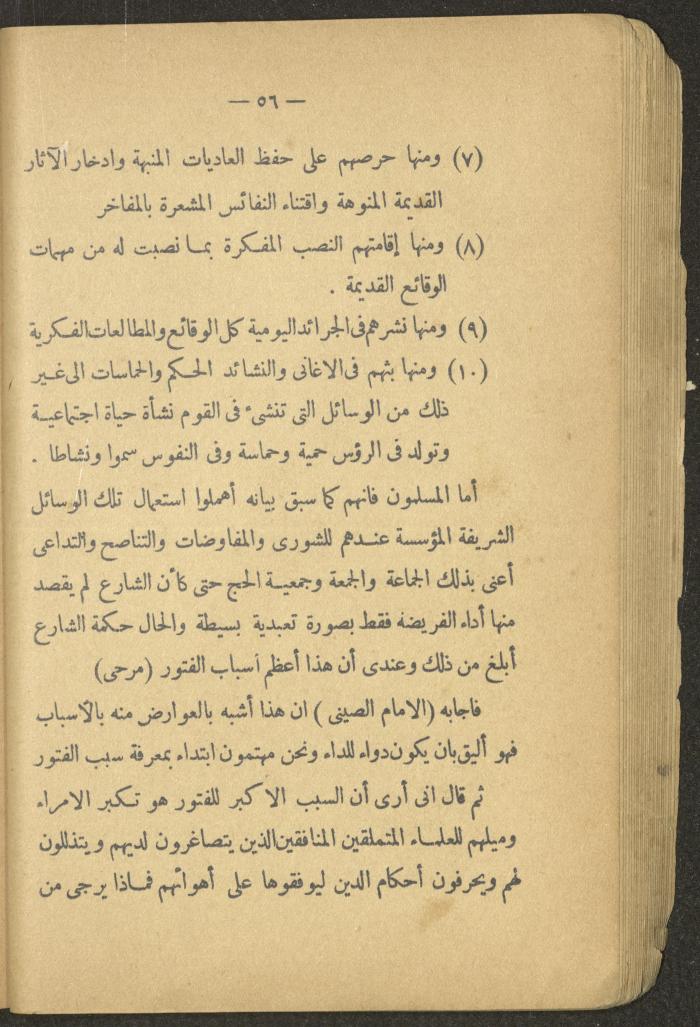 — ٥٦ —
(٧) ومنها حرصهم على حفظ العاديات المنبهة وادخار الآثار
القديمة المنوهة واقتناء النفائس المشعرة بالمفاخر
(٨) ومنها إقامتهم النصب المفكرة بما نصبت له من مهمات
الوقائع القديمة .
(٩) ومنها نشرهم فى الجرائد اليومية كل الوقائع والمطالعات الفكرية
(١٠) ومنها بثهم فى الاغانى والنشائد الحكم والحماسات الى غير
ذلك من الوسائل التى تنشىء فى القوم نشأة حياة اجتماعية
وتولد فى الرؤس حمية وحماسة وفى النفوس سموا ونشاطا .
أما المسلمون فانهم كما سبق بيانه أهملوا استعمال تلك الوسائل
الشريفة المؤسسة عندهم للشورى والمفاوضات والتناصح والتداعى
أعنى بذلك الجماعة والجمعة وجمعية الحج حتى كأن الشارع لم يقصد
منها أداء الفريضة فقط بصورة تعبدية بسيطة والحال حكمة الشارع
أبلغ من ذلك وعندى أن هذا أعظم أسباب الفتور (مرحى)
فاجابه (الامام الصينى) ان هذا أشبه بالعوارض منه بالأسباب
فهو أليق بان يكون دواء للداء ونحن مهتمون ابتداء بمعرفة سبب الفتور
ثم قال انى أرى أن السبب الاكبر للفتور هو تكبر الامراء
وميلهم للعلماء المتملقين المنافقين الذين يتصاغرون لديهم ويتذللون
لهم ويحرفون أحكام الدين ليوفقوها على أهوائهم فماذا يرجى من